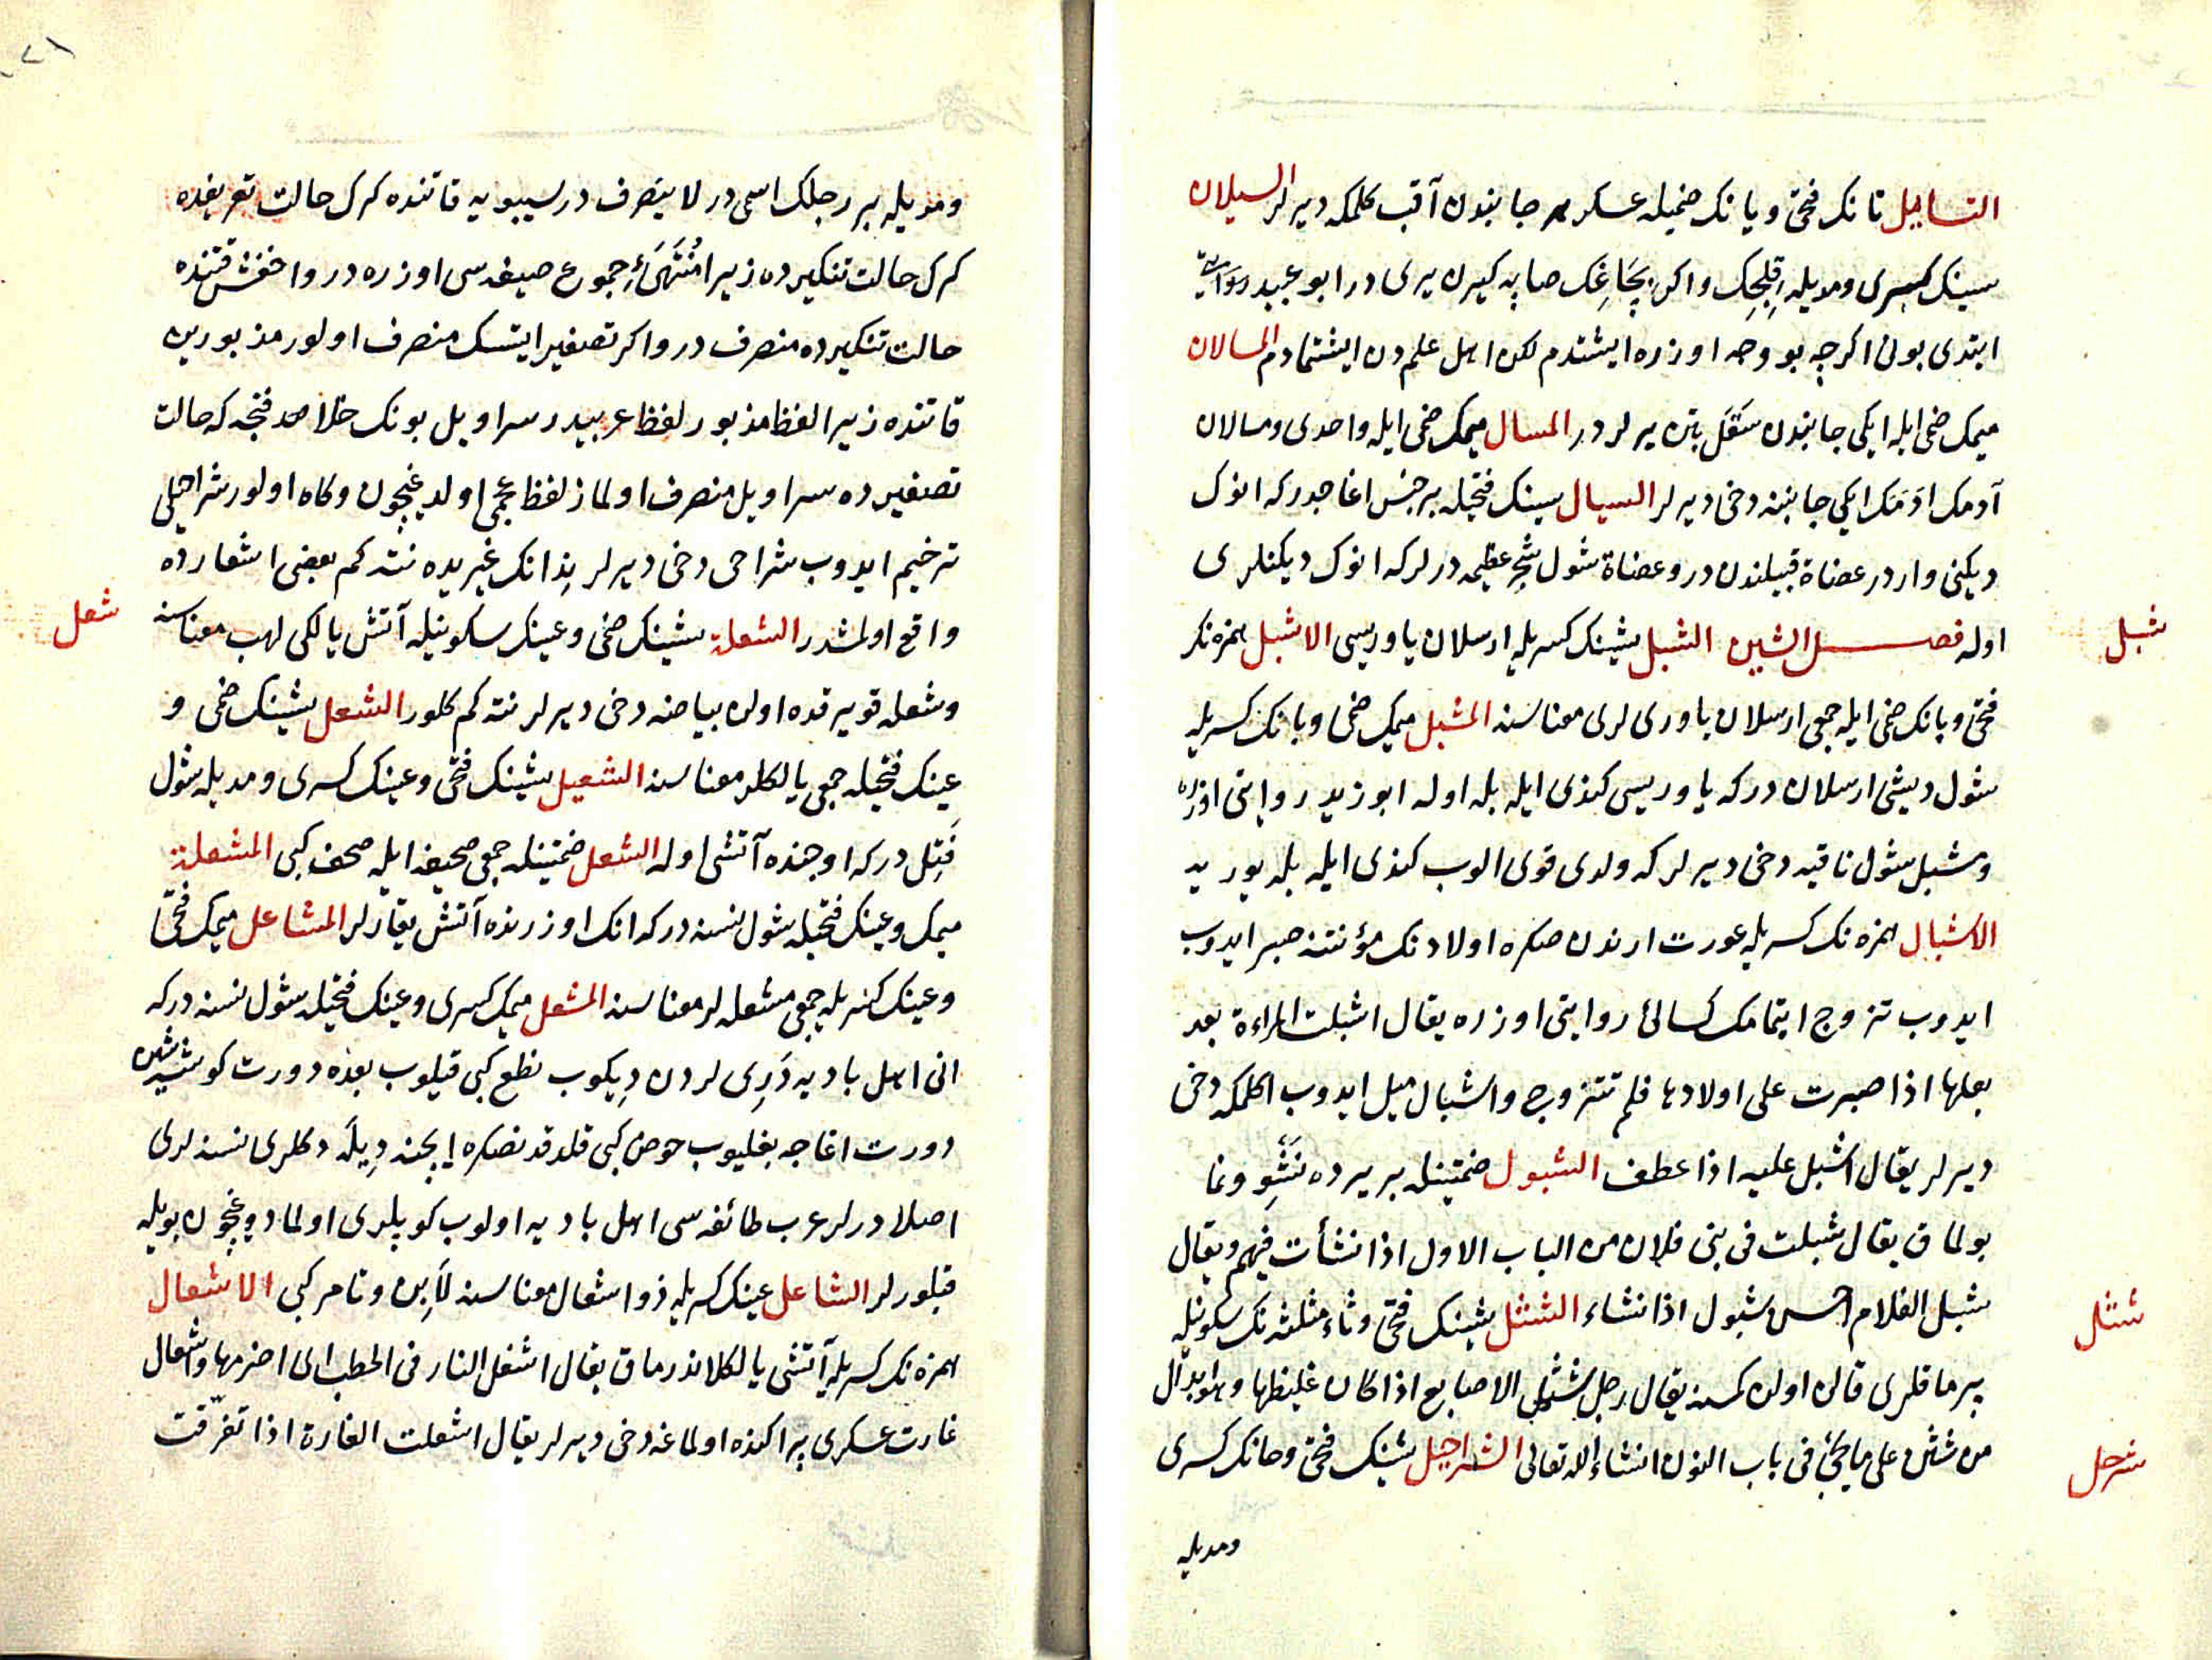 التسايل تانك فتحى ويانك ضميله عسكر هر جانبدن آقب كلمكه ديرلر السيلان
سينك كسرى ومديله قلجك واكر بچاغك صاپه كيرن يرى در ابو عبيد روايت
ابتدى بونى اكرچه بو وجه اوزره ايشتدم لكن اهل علمدن ايشتمادم المسالان
ميمك ضمى ايله ايكى جانبدن سقل بتن يرلردر المسال ميمك ضمى ايله واحدى ومسالان
آدمك ادمك ايكى جانبنه دخى ديرلر السيال سينك فتحيله بر جنس اغاجدر كه انوك
ديكنى واردر عضاة قبيلندن در وعضاة شول شجر عظيمه درلر كه انوك ديكنلرى
اوله فصل الشين الشبل شينك كسريله ارسلان ياوريسى الاشبل همزه نك
فتحى وبانك ضمى ايله جمعى ارسلان ياورى لرى معناسنه المشبل ميمك ضمى وبانك كسريله
شول ديشى ارسلان در كه ياوريسى كندى ايله بله اوله ابو زيد روايتى اوزره
ومشبل شول ناقيه دخى ديرلر كه ولدى قوى الوب كندى ايله بله يوريه
الاشبال همزه نك كسريله عورت ارندن صكره اولادنك مؤنتنه صبر ايدوب
ايدوب تزوج ايتمامك كسائى روايتى اوزره يقال اشبلت المراءة بعد
بعلها اذا صبرت على اولادها فلم تتزوج واشبال ميل ايدوب اكلمكه دخى
ديرلر يقال اشبل عليه اذا عطف الشبول ضمتينله بر يرده نشو ونما
بولماق يقال شبلت فى بنى فلان من الباب الاول اذا نشأت فيهم ويقال
شبل الغلام احسن شبول اذا نشاء الشثل شينك فتحى وثاء مثلثه نك سكونيله
پرماقلرى قالن اولن كمسنه يقال رجل شثل الاصابع اذا كان غليظها وهو ابدال
من شثن على ما يجئ فى باب النون انشاء الله تعالى الشراحيل شينك فتحى وحانك كسرى
ومديله
شبل
شثل
شرحل
ومديله بر رجلك اسمى در لا ينصرف در سيبويه قاتنده كرك حالت تعريفده
كرك حالت تنكيرده زيرا منتهىء جموع صيغه سى اوزره در واخفش قتنده
حالت تنكيرده منصرف در واكر تصغير ايتسك منصرف اولور مذبورين
قاتنده زيرا لفظ مذبور لفظ عربيدر سراويل بونك خلافنجه كه حالت
تصغيرده سراويل منصرف اولماز لفظ عجمى اولديغيچون وكاه اولور شراحيلى
ترخيم ايدوب شراحى دخى ديرلر ندانك غيريده نته كم بعضى اشعارده
واقع اولمشدر الشعلة شينك ضمى وعينك سكونيله آتش يالكى لهب معناسنه
وشعله قويرقده اولن بياضه دخى ديرلر نته كم كلور الشعل شينك ضمى و
عينك فتحيله جمعى يالكلر معناسنه الشعيل شينك فتحى وعينك كسرى ومديله شول
فتل در كه اوجنده آتشى اوله الشعل ضمتينله جمعى صحيفه ايله صحف كبى المشعلة
ميمك وعينك فتحيله شول نسنه در كه انك اوزرنده آتش يقارلر المشاعل ميمك فتحى
وعينك كسريله جمعى مشعله لر معناسنه المشعل ميمك كسرى وعينك فتحيله شول نسنه در كه
انى اهل باديه دَرِى لردن دِيكوب نطع كبى قيلوب بعده دورت كوشه سن
دورت اغاجه بغليوب حوض كبى قلدقدنصكره ايچنه دِيلَه دكلرى نسنه لرى
اصلادرلر عرب طائفه سى اهل باديه اولوب كوپلرى اولمادوغيچون بويله
قيلورلر الشاعل عينك كسريله ذو اشعال معناسنه لَابِن وتامر كبى الاشعال
همزه نك كسريله آتشى يالكلاندرماق يقال اشعل النار فى الحطب اى اضرمها واشعال
غارت عسكرى پراكنده اولماغه دخى ديرلر يقال اشعلت الغارة اذا تفرّقت
شعل